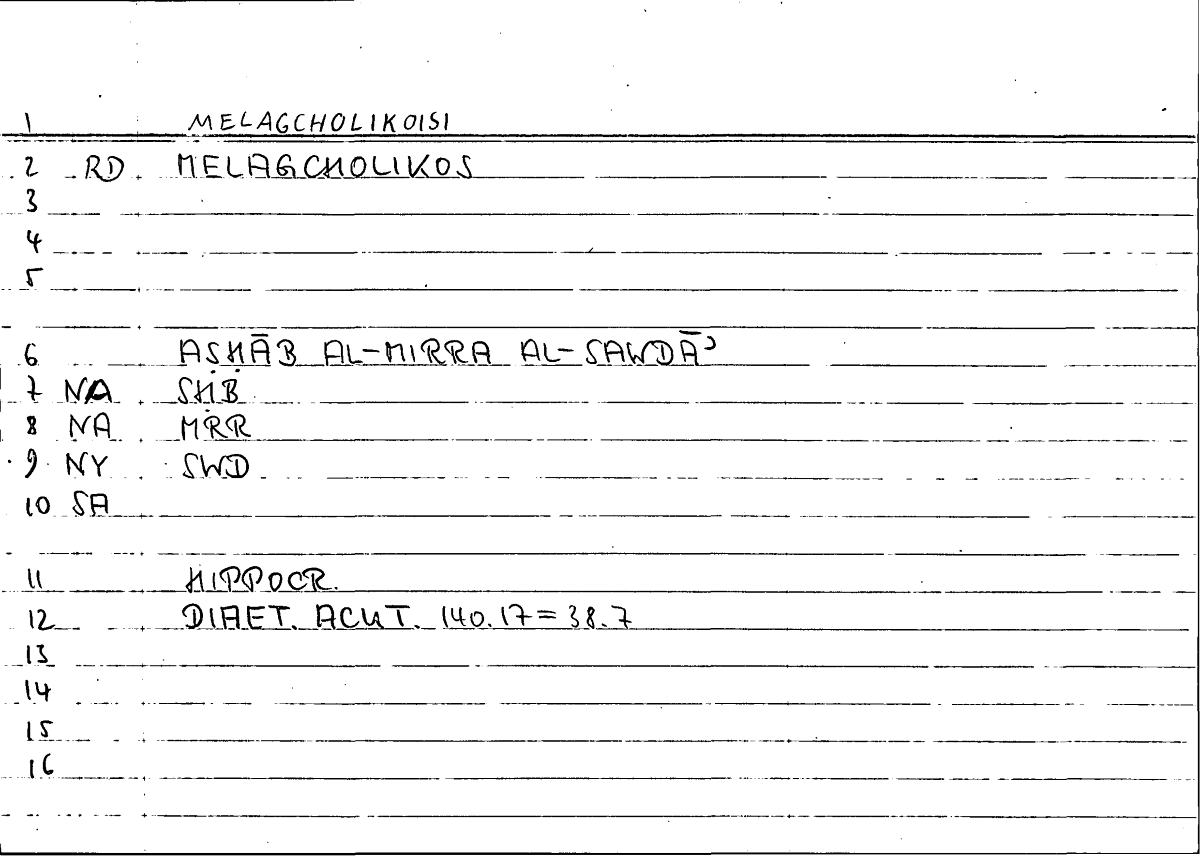 1 MELAGCHOLIKOISI
2 RD. MELAGCHOLIKOS
3
4
5
6 AṢḤĀB AL-MIRRA AL-SAWDĀʾ
7 NA ṢḤB
8 NA MRR
9 NY SWD
10 SA
11 HIPPOCR.
12 DIAET. ACUT. 140.17=38.7
13
14
15
16